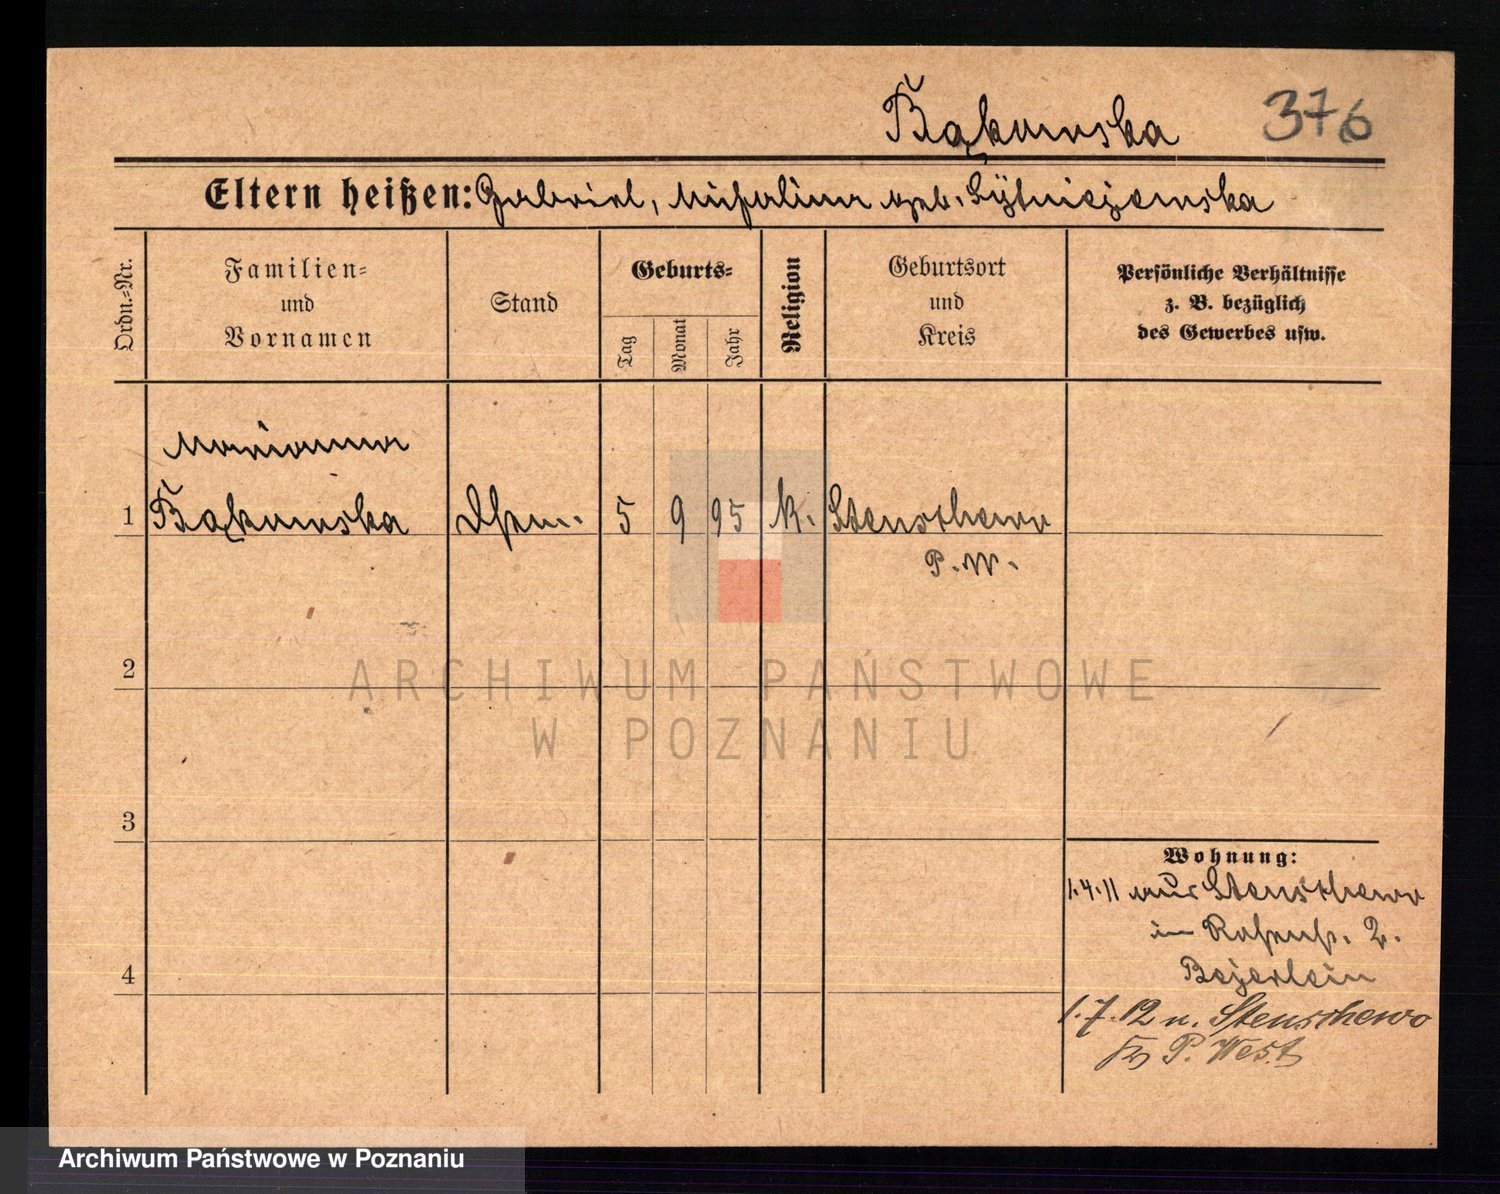 Bąkowska 376
Eltern heißen: Gabriel, Michalina geb.
Ordn.-Nr.
Familien-
und
Vornamen
Stand
Geburts-
Tag
Monat
Jahr
Religion
Geburtsort
und
Kreis
Persönliche Verhältnisse
z. B. bezüglich
des Gewerbes usw.
Marianna
1 Bąkowska 5 9 95 k. Stenschewo
P. W.
2
3
4
Wohnung:
1.4.11 aus Stenschewo
in 2.
Beyerlein
1.7.12 n. Stenschewo
Kr P. West
ARCHIWUM PAŃSTWOWE
W POZNANIU
Archiwum Państwowe w Poznaniu